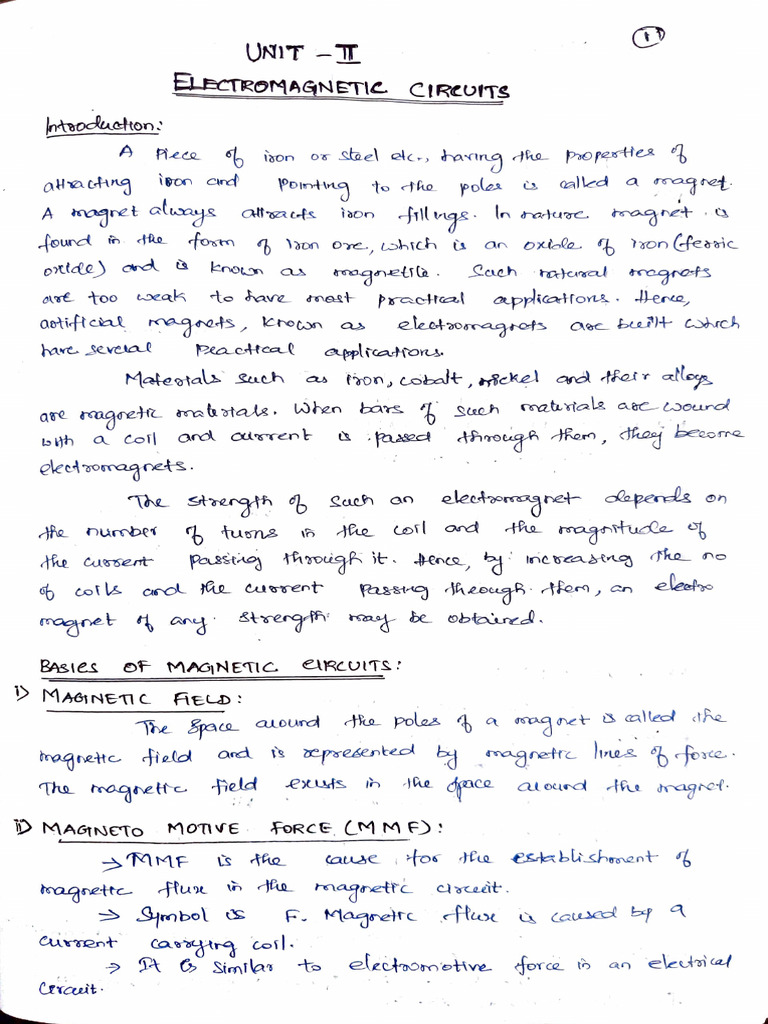 1)
UNIT - II
ELECTROMAGNETIC CIRCUITS
Introduction:
A Piece of iron or steel etc., having the properties of
attracting iron and pointing to the poles is called a magnet.
A magnet always attracts iron fillings. In nature magnet is
found in the form of Iron ore, which is an oxide of iron (ferric
oxide) and is known as magnetile. Such natural magnets
are too weak to have most practical applications. Hence,
artificial magnets, known as electromagnets are built which
have several practical applications.
Materials such as iron, cobalt, nickel and their alloys
are magnetic materials. When bars of such materials are wound
with a coil and current is passed through them, they become
electromagnets.
The strength of such an electromagnet depends on
the number of turns in the coil and the magnitude of
the current passing through it. Hence, by increasing the no
of coils and the current passing through them, an electro
magnet of any strength may be obtained.
BASICS OF MAGNETIC CIRCUITS:
i) MAGINETIC FIELD:
The space around the poles of a magnet is called the
magnetic field and is represented by magnetic lines of force.
The magnetic field exists in the space around the magnet.
ii) MAGNETO MOTIVE FORCE (MMF):
→ MMF is the cause for the establishment of
magnetic flux in the magnetic circuit.
→ Symbol is F. Magnetic flux is caused by a
current carrying coil.
→ It is similar to electromotive force in an electrical
circuit.